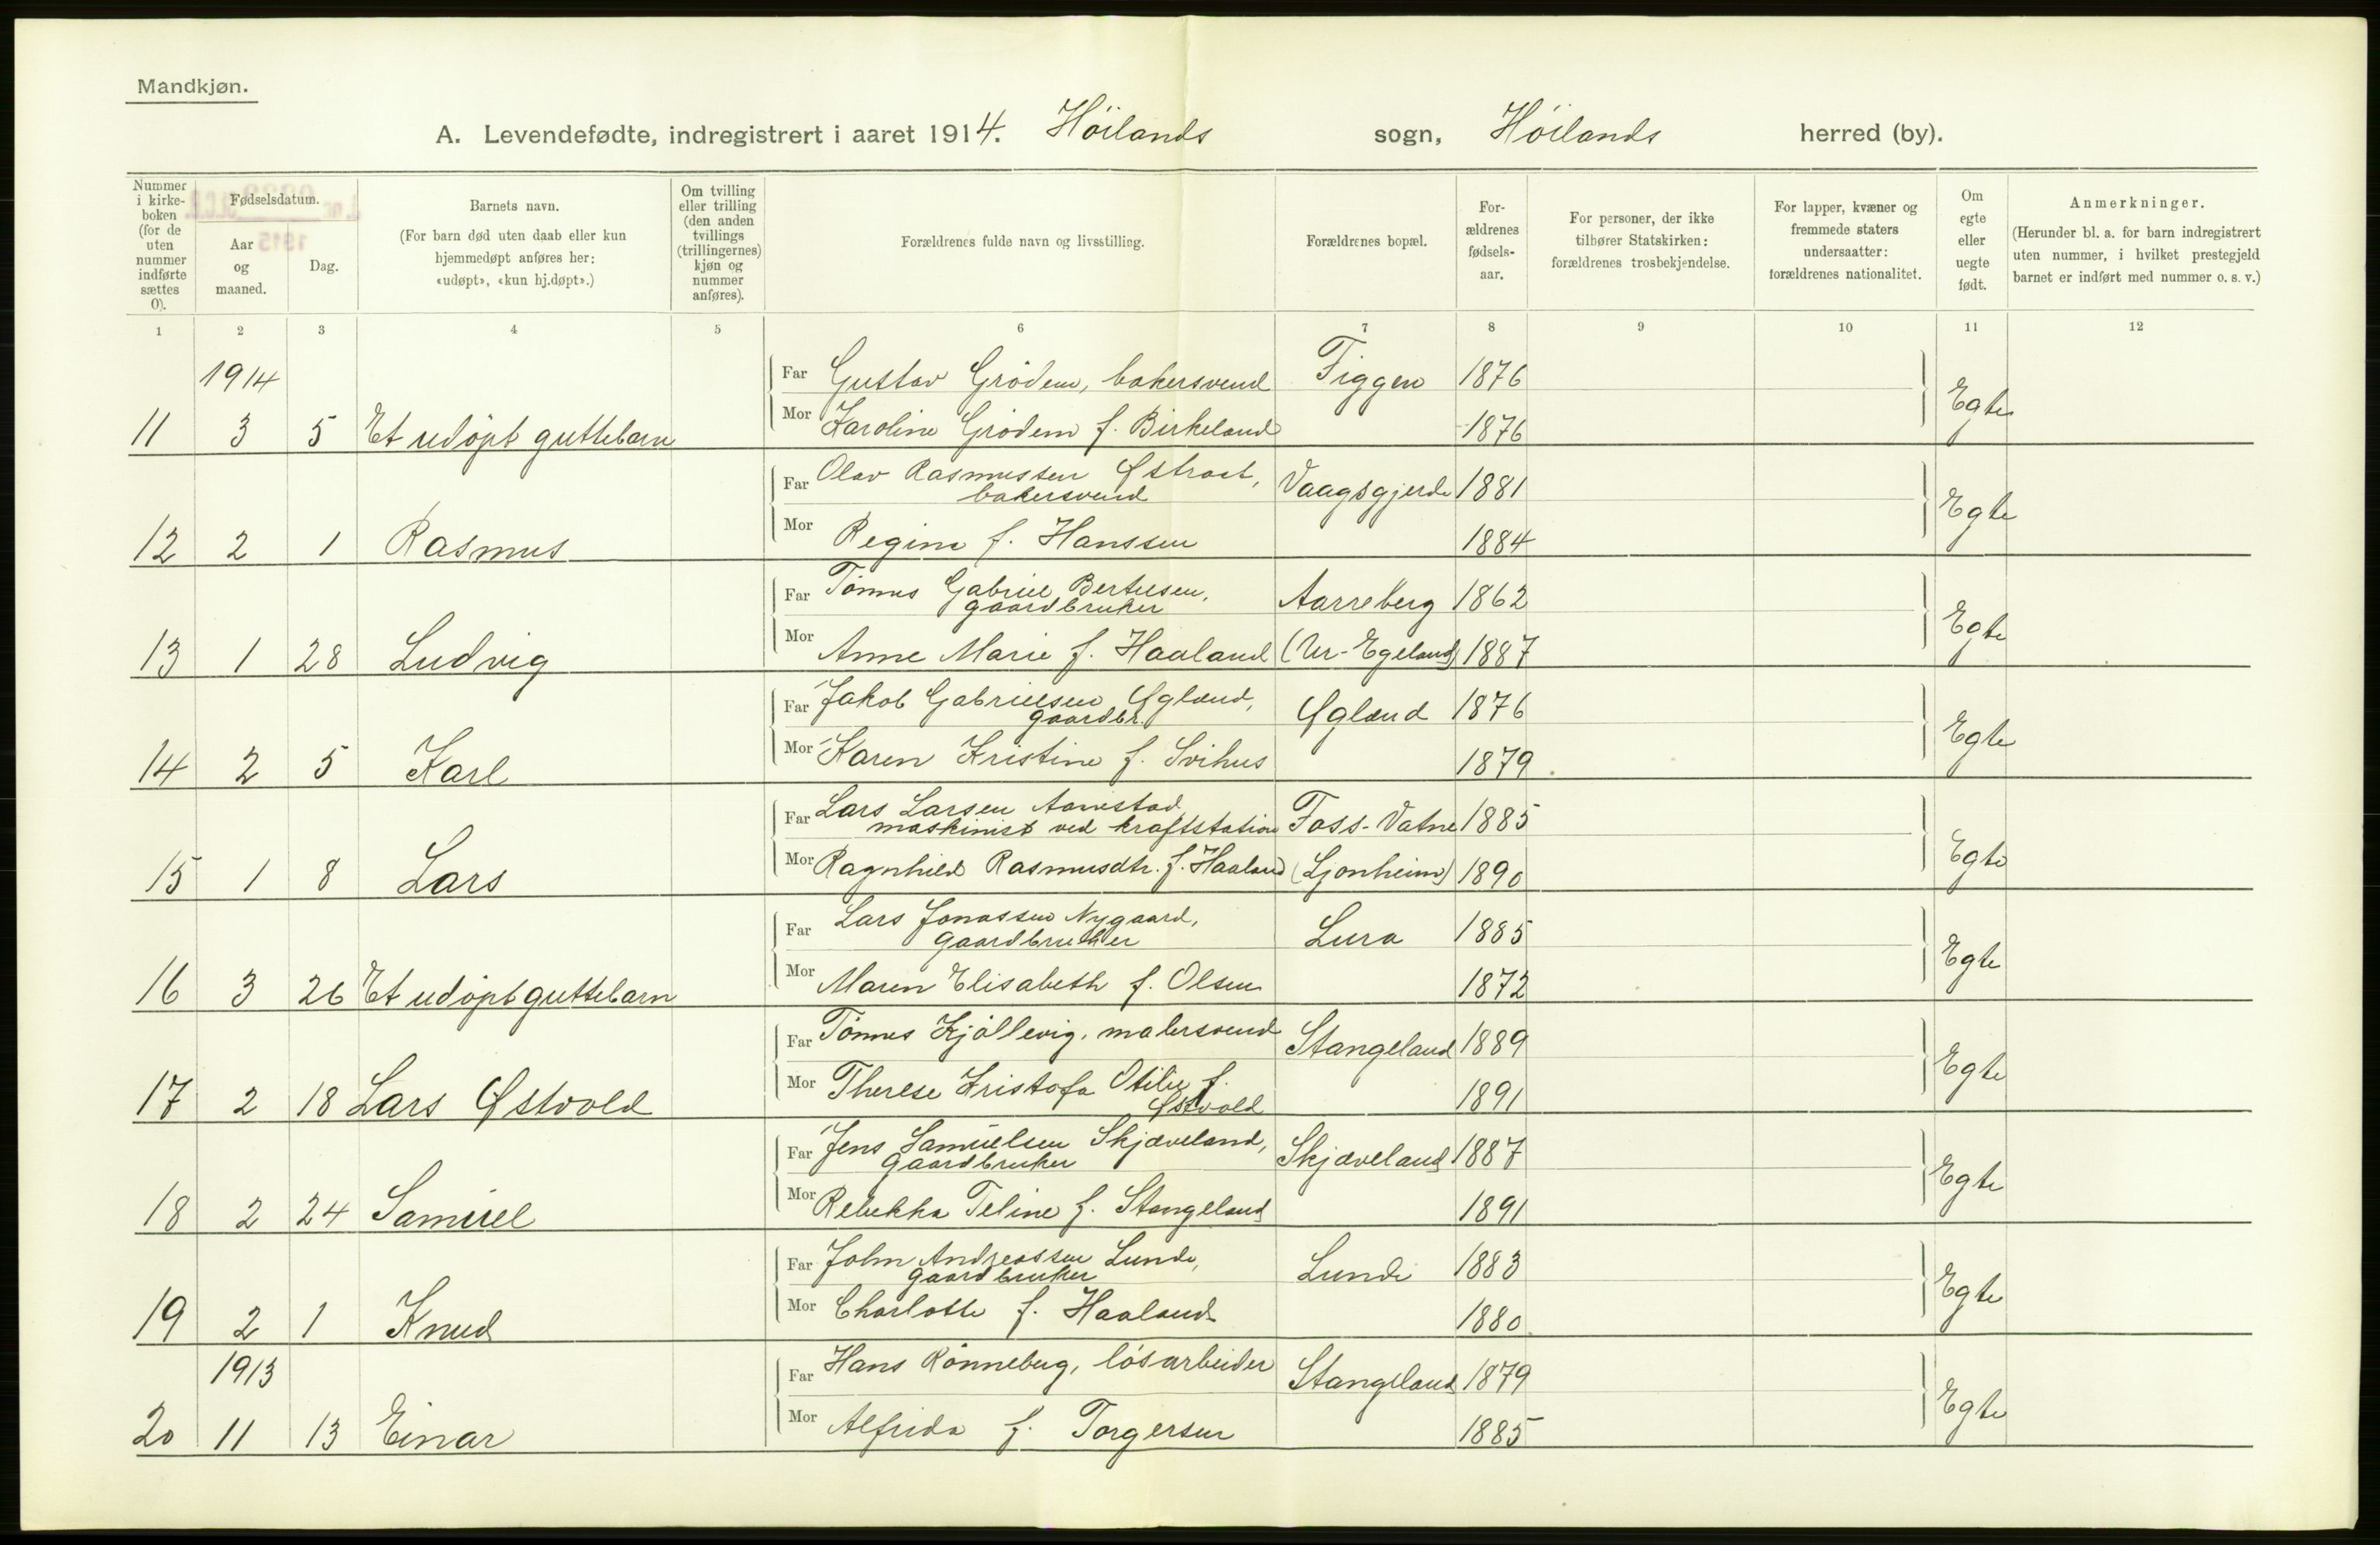 Mandkjøn.
A. Levendefødte, indregistrert i aaret 1914. Höilands sogn, Höilands herred (by).
Nummer i kirke-boken (for de uten nummer indførte sættes 0).
Fødselsdatum.
Aar og maaned.
Dag.
Barnets navn.
(For barn død uten daab eller kun hjemmedøpt anføres her: «udøpt», «kun hj.døpt».)
Om tvilling eller trilling (den anden tvillings (trillingernes) kjøn og nummer anføres).
Forældrenes fulde navn og livsstilling.
Forældrenes bopæl.
For-ældrenes fødsels-aar.
For personer, der ikke tilhører Statskirken: forældrenes trosbekjendelse.
For lapper, kvæner og fremmede staters undersaatter: forældrenes nationalitet.
Om egte eller uegte født.
Anmerkninger.
(Herunder bl. a. for barn indregistrert uten nummer, i hvilket prestegjeld barnet er indført med nummer o. s. v.)
1 2 3 4 5 6 7 8 9 10 11 12
1914 Far Gustav Grödem, bakersvend Figgen 1876
11 3 5 Et udöpt guttebarn Mor Karoline Grödem f. Birkeland 1876 Egte
Far Olav Rasmussen Østraat, bakersvend Vaagsgjerde 1881
12 2 1 Rasmus Mor Regine f. Hanssen 1884 Egte
Far Tönnes Gabriel Bertelsen, gaardbruker Aarreberg 1862
13 1 28 Ludvig Mor Anne Marie f. Haaland (Ur-Egeland) 1887 Egte
Far Jakob Gabrielsen Øgland, gaardbr. Øgland 1876
14 2 5 Karl Mor Karen Kristine f. Svihus 1879 Egte
Far Lars Larsen Aanestad maskinist ved kraftstation Foss-Vatne 1885
15 1 8 Lars Mor Ragnhild Rasmusdtr. f. Haaland (Ljonheim) 1890 Egte
Far Lars Jonassen Nygaard, gaardbruker Lura 1885
16 3 26 Et udöpt guttebarn Mor Maren Elisabeth f. Olsen 1872 Egte
Far Tönnes Kjöllevig, malersvend Stangeland 1889
17 2 18 Lars Østvold Mor Therese Kristofa Otilie f. Østvold 1891 Egte
Far Jens Samuelsen Skjæveland, gaardbruker Skjæveland 1887
18 2 24 Samuel Mor Rebekka Teline f. Stangeland 1891 Egte
Far John Andreassen Lunde, gaardbruker Lunde 1883
19 2 1 Knud Mor Charlotte f. Haaland 1880 Egte
1913 Far Hans Rönneberg, lösarbeider Stangeland 1879
20 11 13 Einar Mor Alfrida f. Torgersen 1885 Egte